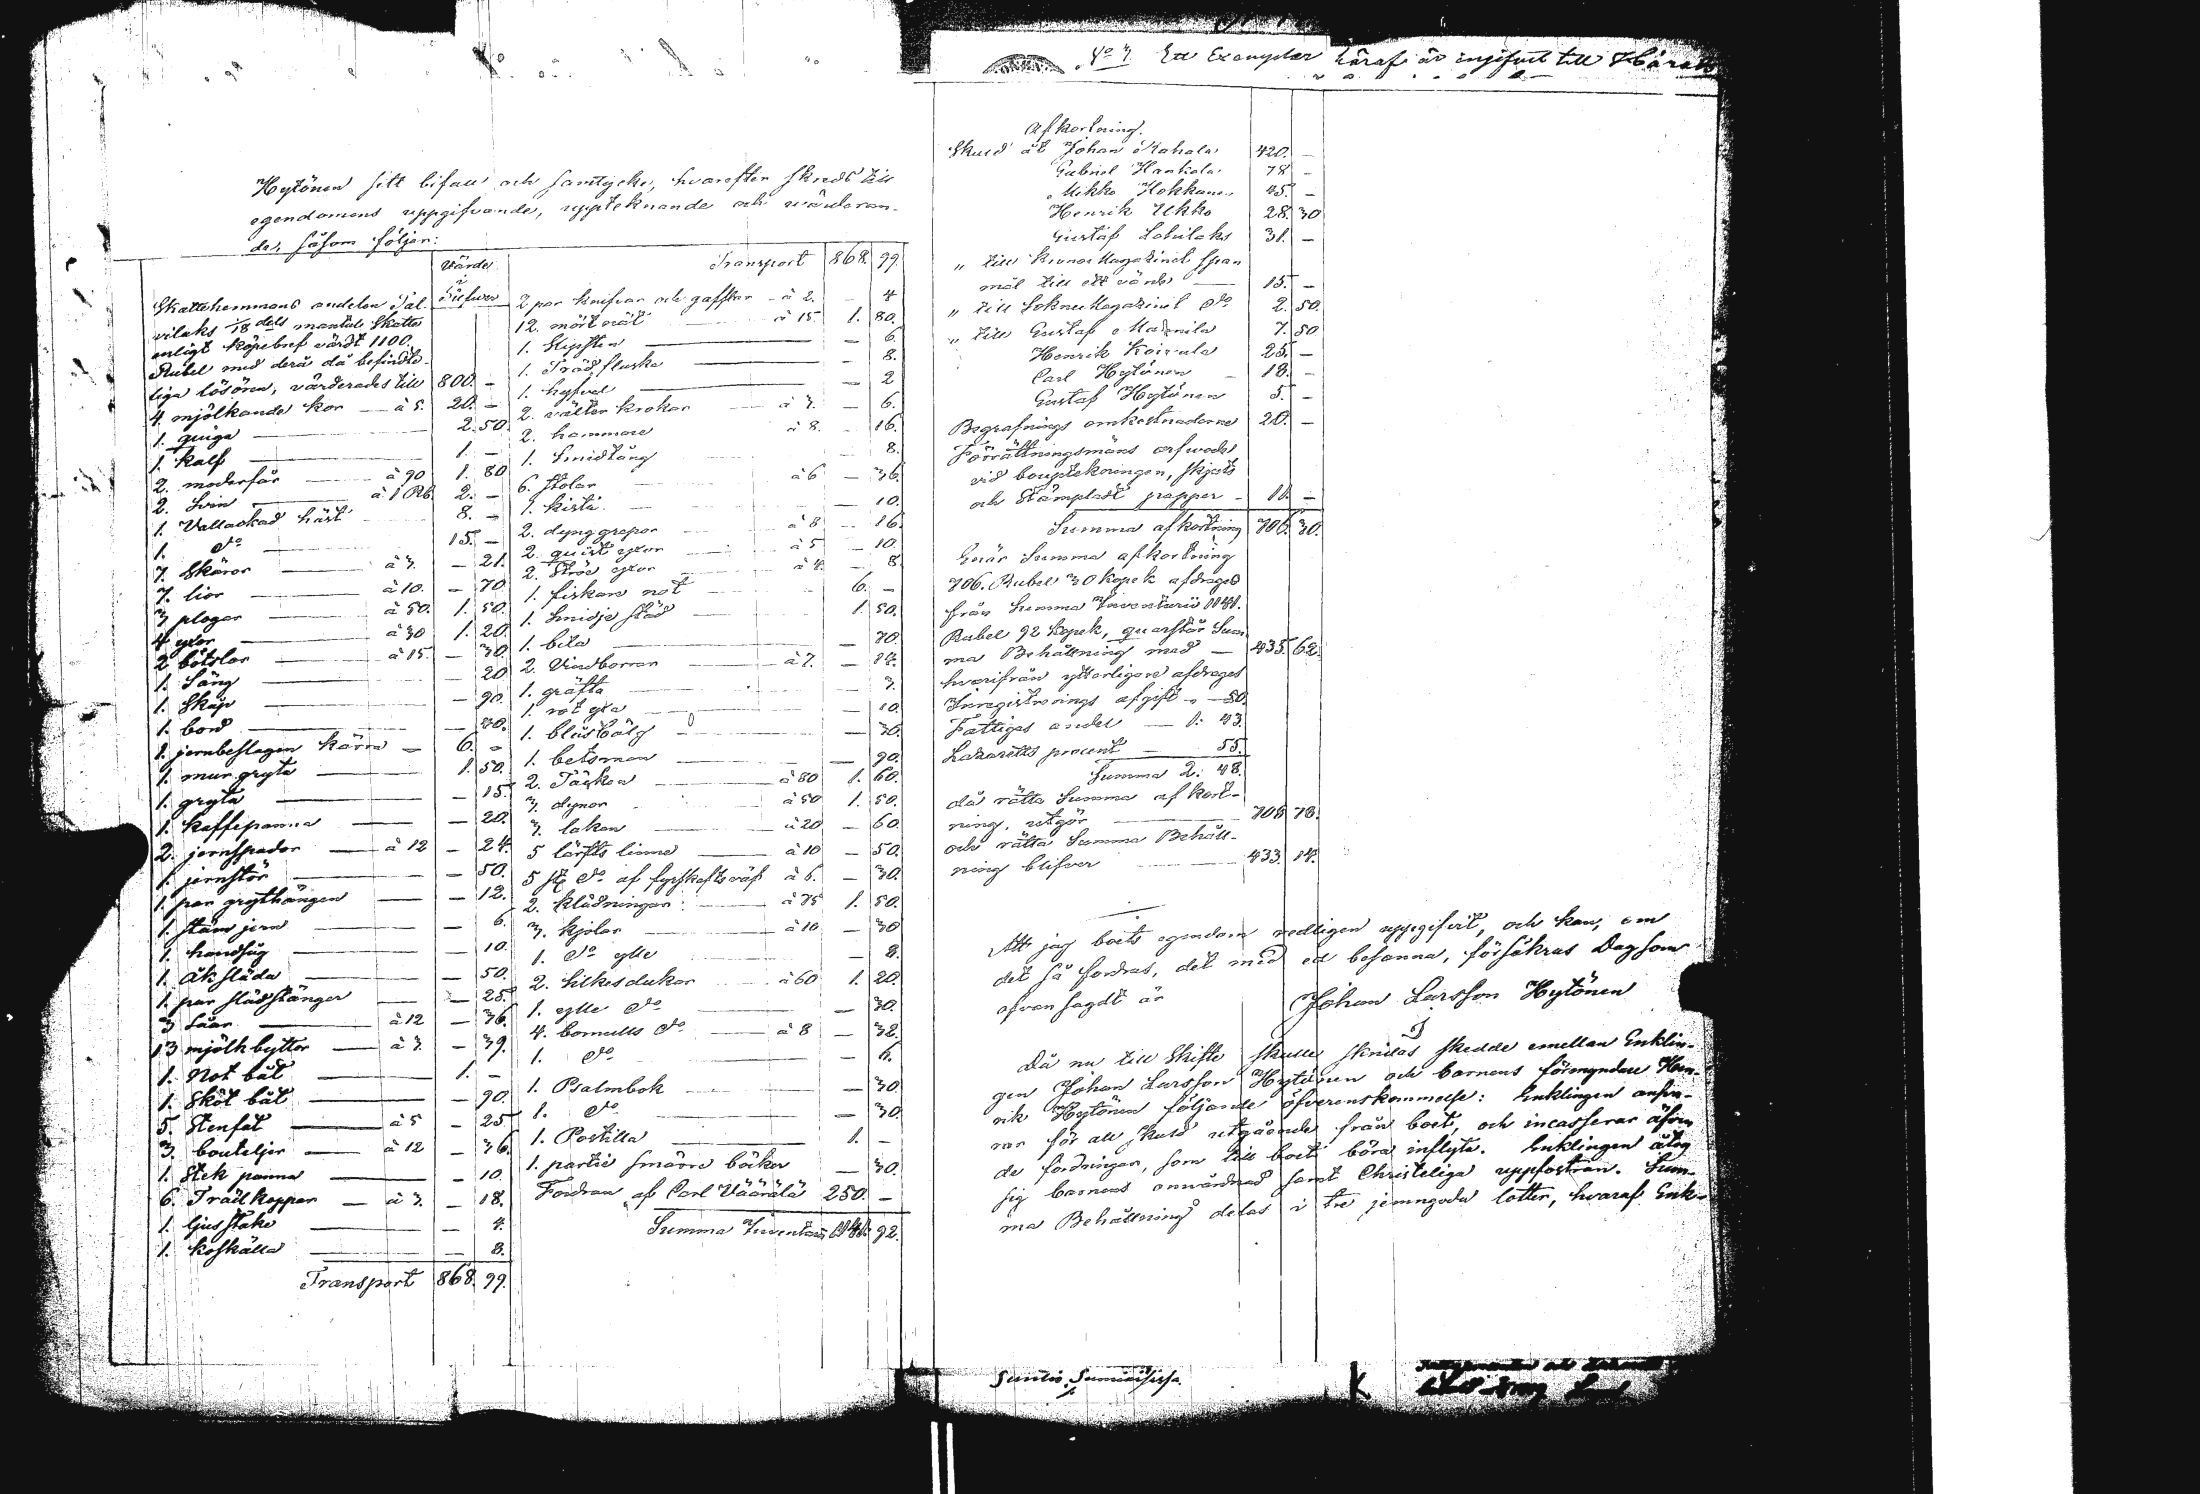 Hytönen sitt bifall och samtycke, hvarefter skreds till
egendomens uppgifvande, uppteknande och värderan-
de, såsom följer:
Värde
i
Silfver
Skattehemmans andelen Sal
vilaks 1/18 dels mantals Skatte
enligt köpebref värdt 1100.
Rubel med derå då befindte-
liga lösören, värderades till 800. -
4. mjölkande kor — à 5. 20. -
1. quiga — 2. 50.
1. kalf — 1. -
2. moderfår — à 90 1. 80
2. Svin — à 1 Rb. 2. -
1. Vallackad häst 8. -
1. do — 15. -
7. Skäror — à 3. - 21.
7. lior — à 10. - 70.
3 plogar — à 50. 1. 50.
4 yxor — à 30 1. 20.
2 bötslor — à 15. - 30.
1. Säng — 20
1. Skåp — - 90.
1. bord — - 30.
1. jernbeslagen kärra — 6. -
1. mur gryta — 1. 50.
1. gryta — - 15.
1. kaffepanna — - 20.
2. jernspador — à 12 - 24.
1. jernstör — - 50.
1. par grythängen — - 12.
1. stäm jern — - 6.
1. handsåg — - 10.
1. åksläda — - 50.
1. par slädstänger — - 25.
3 Såar — à 12 - 36.
13 mjölkbyttor — à 3. - 39.
1. Not båt — 1. -
1. Sköt båt — - 90.
5. Stenfat — à 5 - 25
3. bouteljer — à 12 - 36.
1. Stek panna — - 10.
6. Träd koppar — à 3. - 18.
1. ljusstake — - 4.
1. koskälla — - 8.
Transport 868. 99.
Transport 868. 99.
2 par knifvar och gafflar - à 2. - 4
12. mörtnät — à 15 1. 80.
1. Slipsten — - 6.
1. Trädflaska — - 8.
1. hyfvel — - 2
2. välter krokar — à 3. - 6.
2. hammare à 8. - 16.
1. Smidtång 8.
6. stolar — à 6 - 36.
1. kista — 10.
2. dynggrepar — à 8 - 16.
2. quist yxor — à 5 - 10.
2. Stöd yxor — à 4. - 8.
1. fiskare not — 6. -
1. Smidje städ — 1. 50.
1. bila — - 70.
2. Vindborrar — à 7. - 14.
1. gräfta — - 7.
1. rot yxa — - 10.
1. blåsbälg — - 30.
1. betsman — - 90.
2. Täcken — à 80 1. 60.
3. dynor — à 50 1. 50.
3. lakan — à 20 - 60.
5 lärfts linne — à 10 - 50.
5 st do af fyrskaftsväf à 6. - 30.
2. klädningar — à 75 1. 50.
3. kjolar — à 10 - 30
1. do ylle — - 8.
2. Silkesdukar — à 60 1. 20.
1. ylle do — - 30.
4. bomulls do — à 8 - 32.
1. do — - 6.
1. Psalmbok — - 30
1. do — - 30.
1. Postilla — 1. -
1. partie smärre böcker — 30.
Fordran af Carl Väärälä 250. -
Summa Inventarii 1141. 92.
No 7 Ett Exemplar häraf är ingifvet till Härads
Afkortning.
Skuld åt Johan Kahala 420. -
Gabriel Hankola 78 -
Mikko Hokkanen 45. -
Henrik Ukko 28. 30
Gustaf Salvilaks 31. -
" till Krono Magazinet span
mål till ett värde — 15. -
" till Sokne Magazinet do 2. 50.
" till Gustaf Mannila 7. 50
Henrik Koivula 25. -
Carl Hytönen - 18. -
Gustaf Hytönen 5. -
Begrafnings omkostnaderne 20. -
Förrättningsmäns arfwode
vid bouptekningen, skjuts
och Stämpladt papper - 11. -
Summa afkortning 706. 30.
Enär Summa afkortning
706. Rubel 30 kopek afdrages
från Summa Inventarii 1141.
Rubel 92 kopek, quarstår Sum
ma Behållning med — 435. 62.
hvarifrån ytterligare afdrages
Inregistrerings afgift - 50.
Fattiges andel — 1: 43.
Lazaretts procent — 55.
Summa 2: 48.
då rätta Summa afkort-
ning, utgör — 708 78.
och rätta Summa Behåll-
ning blifver — 433. 14.
Att jag boets egendom redligen uppgifvit, och kan, om
det så fordras, det med ed besanna, försäkras Dag som
ofvan sagdt är
Johan Larsson Hytönen
Då nu till Skifte skulle skridas skedde emellan Enklin-
gen Johan Larsson Hytönen och barnens förmyndare Hen-
rik Hytönen följande öfverenskommelse: Enklingen ansva-
rar för all skuld utgående från boet, och incasserar äfven
de fordringar, som till boet böra inflyta. Enklingen åtog
sig barnens omvårdnad samt Christeliga uppfostran. Sum-
ma Behållning delas i tre jemngoda lotter, hvaraf Enk-